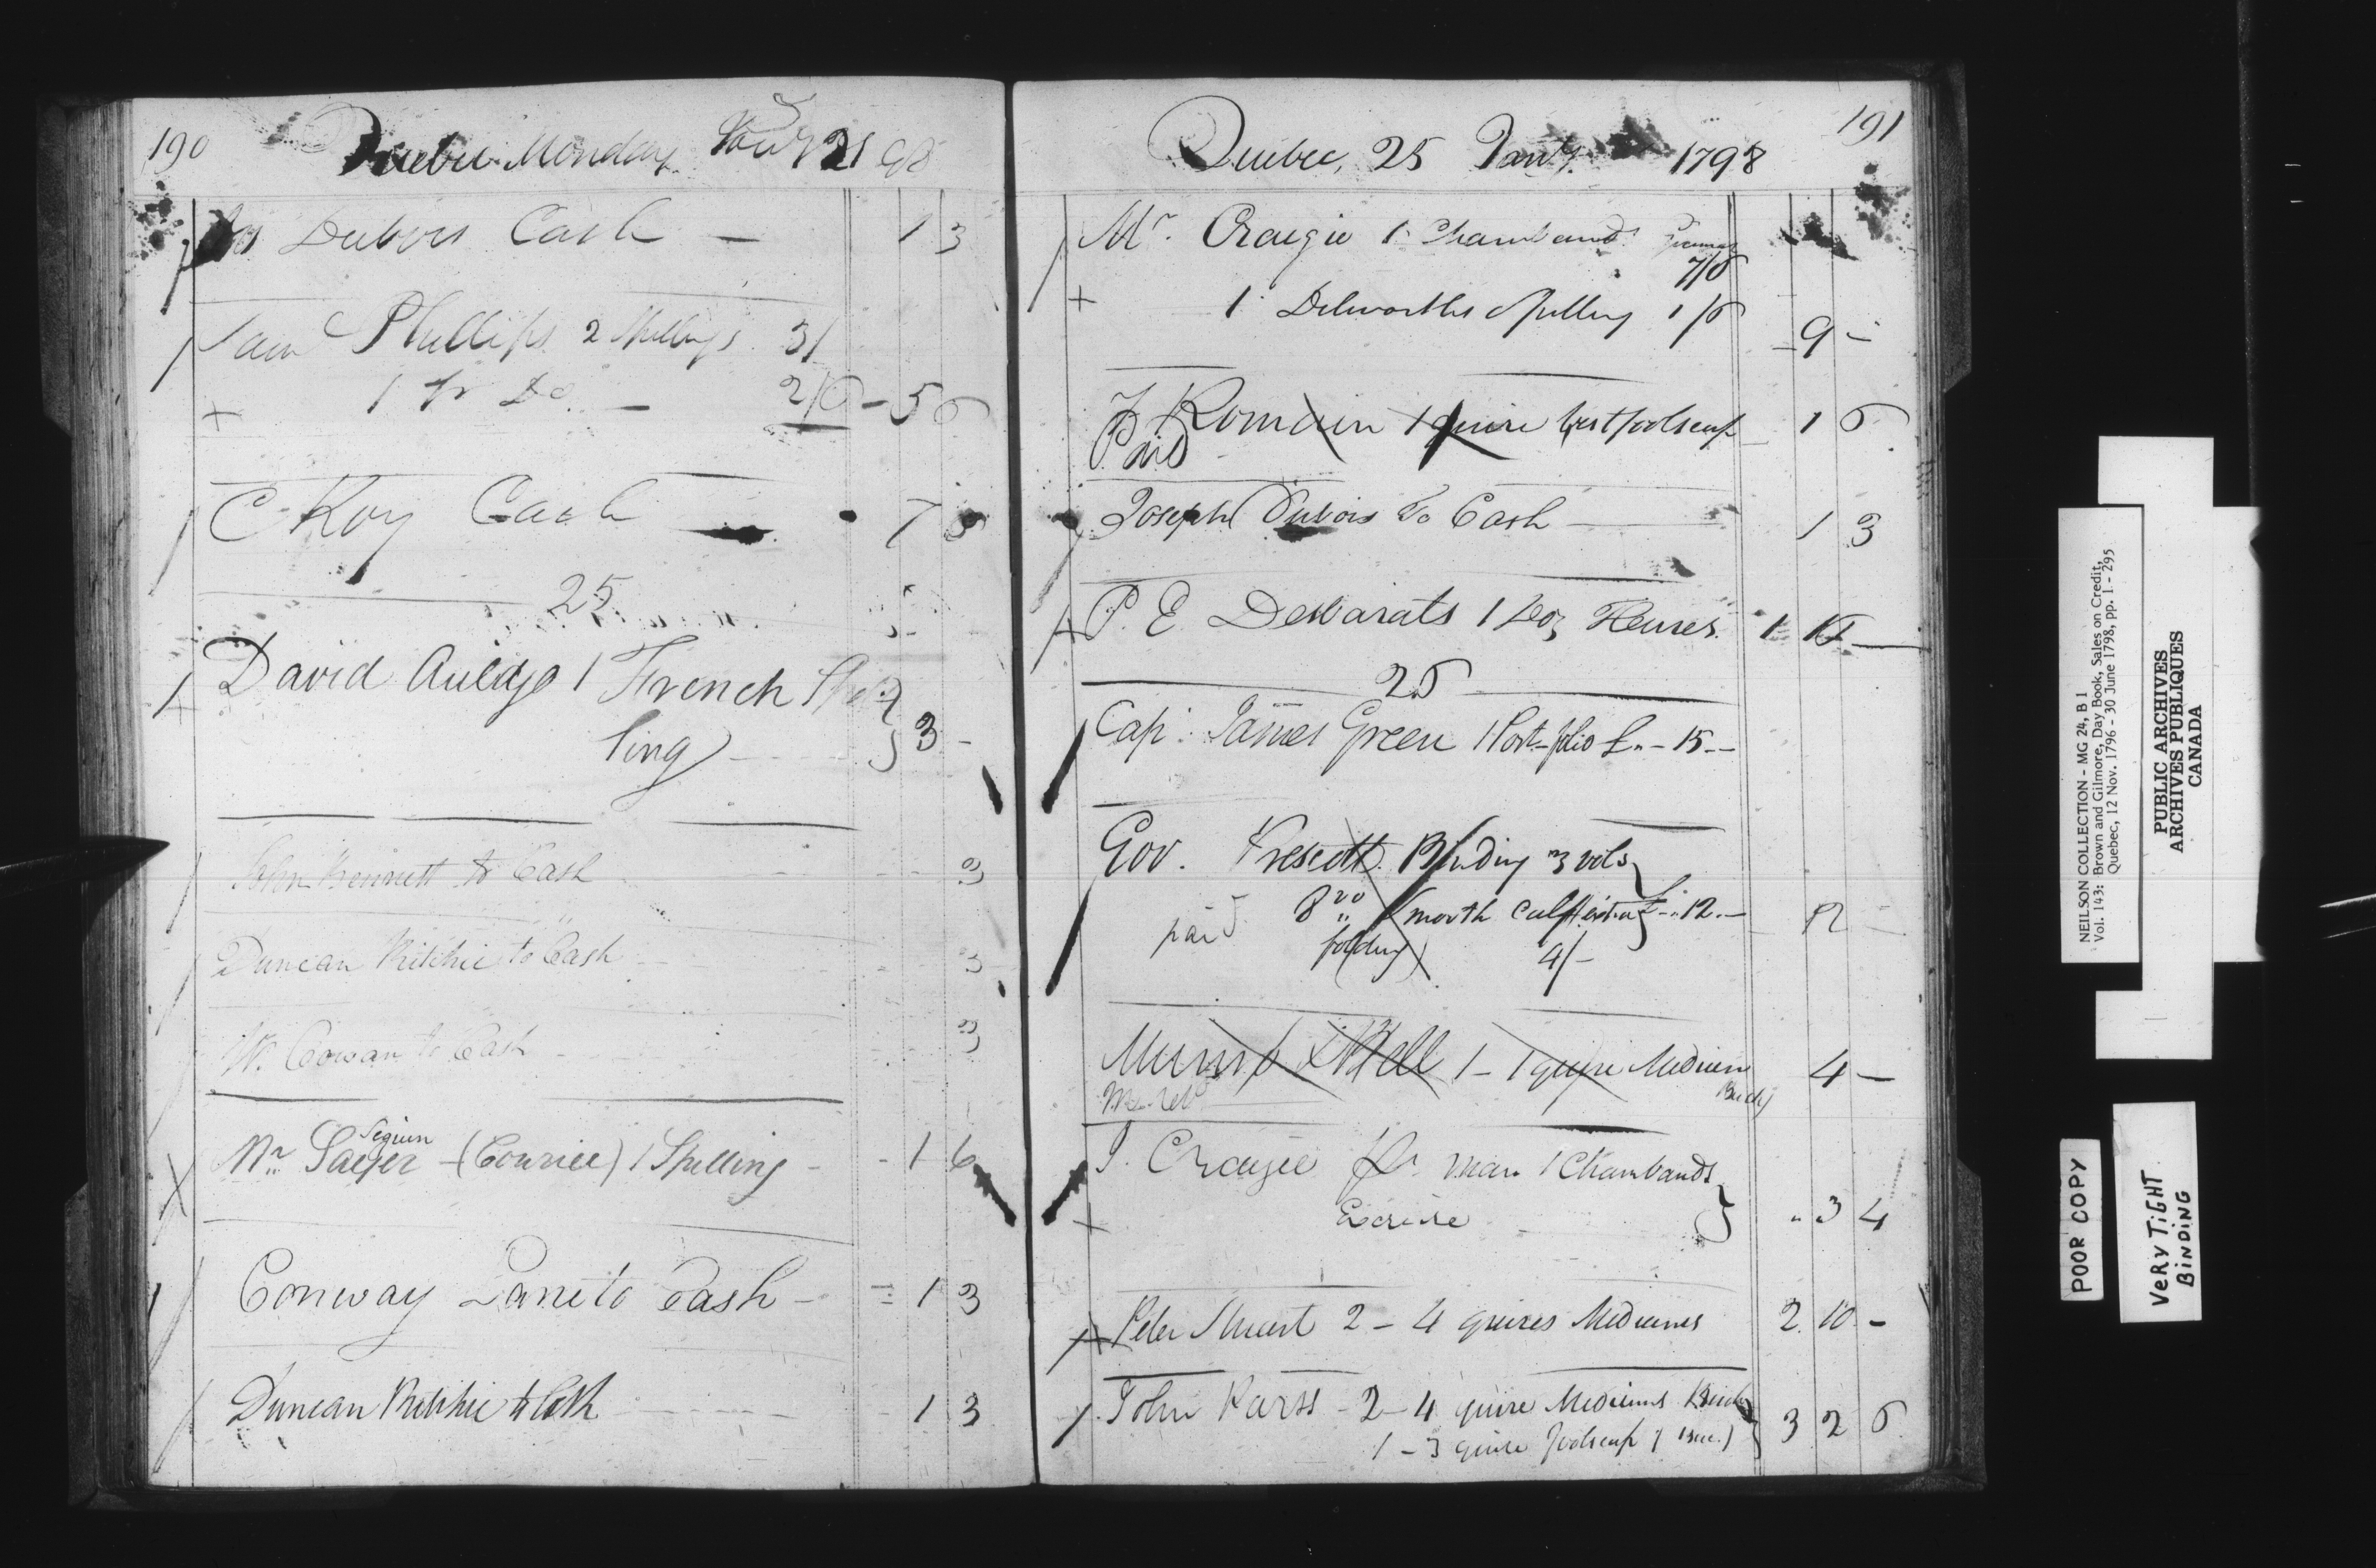 190
Quebec Monday 21 98
Dubois Cash — 1 3
Sam Phillips 2 Spellings 3/
+ 1 Fr Do. — 2/6 — 5 6
C Roy Cash — 7 6
25
David Auldjo 1 French Spel
ling — 3 -
John Bennett to Cash 3
Duncan Ritchie to Cash 3
W. Cowan to Cash 3
Seguin
Mr. Sayer - (Courier) 1 Spelling - - 1 6
Conway Lane to Cash - = 1 3
Duncan Ritchie to Cash - 1 3
191
Quebec, 25 Jany. 1798
Mr. Craigie 1 Chambauds Grammar
7/6
+ 1 Dilworths Spelling 1/6 - 9 -
F Romain 1 quire best foolscap 1 6
Paid
Joseph Dubois To Cash — 1 3
P. E Desbarats 1 Doz Heures.
26
Cap: James Green 1 Port-folio £ " - 15 - -
Gov. Prescott. Binding 3 vols
paid 8vo " Smooth Calf £ - " 12. - 12 -
folding 4/-
Munro & Bell 1 - 1 quire Medium 4 —
J. Craigie 1 Chambauds
+ Exercise " 3 4
Peter Stuart 2 - 4 quires Mediums 2. 10 -
John Parss - 2 - 4 quire Mediums
1 - 3 quire foolscap 3 2 6
NEILSON COLLECTION - MG 24, B 1
Vol. 143: Brown and Gilmore, Day Book, Sales on Credit,
Quebec, 12 Nov. 1796 - 30 June 1798, pp. 1 - 295
PUBLIC ARCHIVES
ARCHIVES PUBLIQUES
CANADA
POOR COPY
VERY TiGHT
BiNDiNG